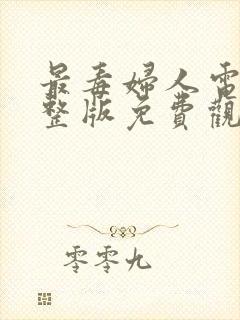 最毒婦人電
整版免費觀
零零九